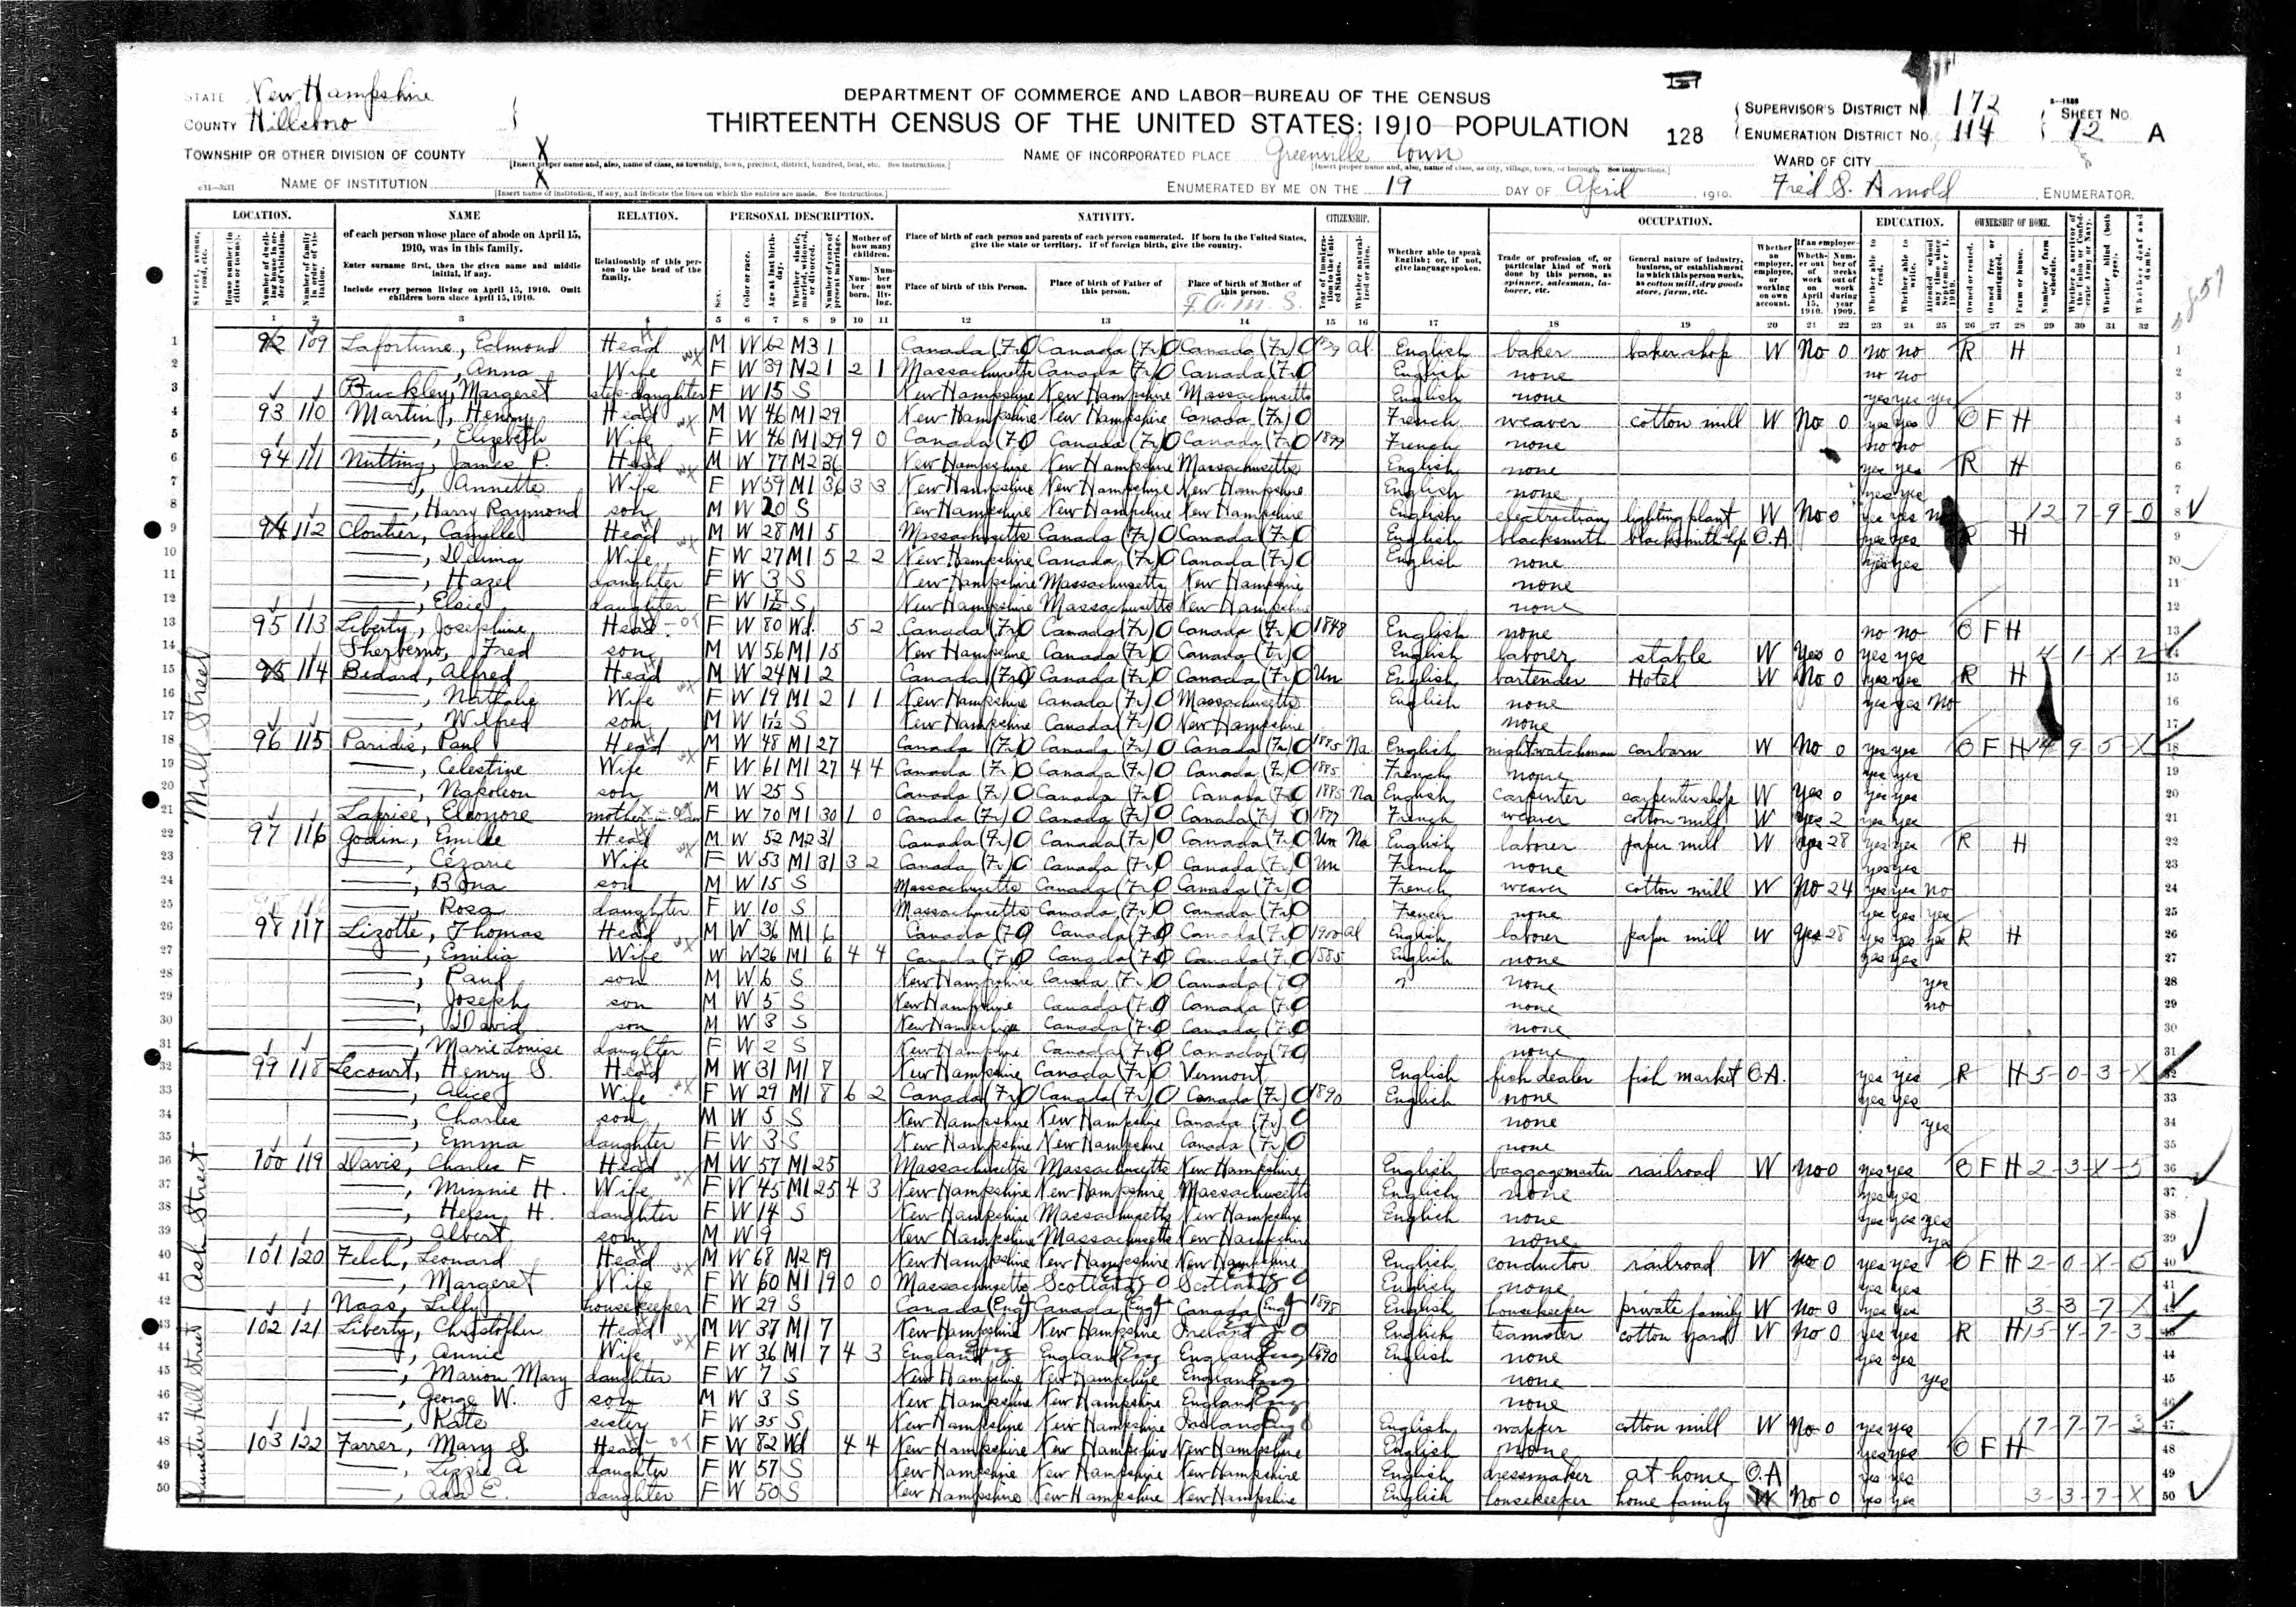 STATE New Hampshire
COUNTY Hillsboro
TOWNSHIP OR OTHER DIVISION OF COUNTY X
[Insert proper name and, also, name of class, as township, town, precinct, district, hundred, beat, etc. See instructions.]
NAME OF INSTITUTION X
[Insert name of institution, if any, and indicate the lines on which the entries are made. See instructions.]
DEPARTMENT OF COMMERCE AND LABOR—BUREAU OF THE CENSUS
THIRTEENTH CENSUS OF THE UNITED STATES: 1910—POPULATION
128
NAME OF INCORPORATED PLACE Greenville town
[Insert proper name and, also, name of class, as city, village, town, or borough. See instructions.]
ENUMERATED BY ME ON THE 19 DAY OF April, 1910. Fred S. Arnold, ENUMERATOR.
SUPERVISOR'S DISTRICT No. 172
ENUMERATION DISTRICT No. 114
SHEET No. 12 A
WARD OF CITY
LOCATION. NAME RELATION. PERSONAL DESCRIPTION. NATIVITY. CITIZENSHIP. OCCUPATION. EDUCATION. OWNERSHIP OF HOME.
of each person whose place of abode on April 15, 1910, was in this family.
Enter surname first, then the given name and middle initial, if any.
Include every person living on April 15, 1910. Omit children born since April 15, 1910.
Relationship of this person to the head of the family.
Place of birth of each person and parents of each person enumerated. If born in the United States, give the state or territory. If of foreign birth, give the country.
Place of birth of this Person. Place of birth of Father of this person. Place of birth of Mother of this person.
Whether able to speak English; or, if not, give language spoken.
Trade or profession of, or particular kind of work done by this person, as spinner, salesman, laborer, etc.
General nature of industry, business, or establishment in which this person works, as cotton mill, dry goods store, farm, etc.
1 2 3 4 5 6 7 8 9 10 11 12 13 14 15 16 17 18 19 20 21 22 23 24 25 26 27 28 29 30 31 32
Mill Street
1 92 109 Lafortune, Edmond Head M W 62 M3 1 Canada (Fr) Canada (Fr) Canada (Fr) al English baker baker shop W No 0 no no R H
2 —, Anna Wife F W 39 M2 1 2 1 Massachusetts Canada (Fr) Canada (Fr) English none no no
3 Buckley, Margeret step-daughter F W 15 S New Hampshire New Hampshire Massachusetts English none yes yes yes
4 93 110 Martin, Henry Head M W 46 M1 29 New Hampshire New Hampshire Canada (Fr) French weaver cotton mill W No 0 yes yes O F H
5 —, Elizebeth Wife F W 46 M1 29 9 0 Canada (Fr) Canada (Fr) Canada (Fr) French none no no
6 94 111 Nutting, James P. Head M W 77 M2 36 New Hampshire New Hampshire Massachusetts English none yes yes R H
7 —, Annette Wife F W 59 M1 36 3 3 New Hampshire New Hampshire New Hampshire English none yes yes
8 —, Harry Raymond son M W 20 S New Hampshire New Hampshire New Hampshire English electrician lighting plant W No 0 yes yes 12 7 9 0
9 94 112 Cloutier, Camille Head M W 28 M1 5 Massachusetts Canada (Fr) Canada (Fr) English blacksmith blacksmith shop O.A yes yes R H
10 —, Delima Wife F W 27 M1 5 2 2 New Hampshire Canada (Fr) Canada (Fr) English none yes yes
11 —, Hazel daughter F W 3 S New Hampshire Massachusetts New Hampshire none
12 —, Elsie daughter F W S New Hampshire Massachusetts New Hampshire none
13 95 113 Liberty, Josephine Head F W 80 Wd. 5 2 Canada (Fr) Canada (Fr) Canada (Fr) 1848 English none no no O F H
14 Fred son M W 56 M1 15 New Hampshire Canada (Fr) Canada (Fr) English laborer stable W Yes 0 yes yes 4 1 X 2
15 95 114 Bedard, Alfred Head M W 24 M1 2 Canada (Fr) Canada (Fr) Canada (Fr) Un English bartender Hotel W No 0 yes yes R H
16 —, Nathalie Wife F W 19 M1 2 1 1 New Hampshire Canada (Fr) Massachusetts English none yes yes No
17 —, Wilfred son M W S New Hampshire Canada (Fr) New Hampshire none
18 96 115 Paridis, Paul Head M W 48 M1 27 Canada (Fr) Canada (Fr) Canada (Fr) 1885 Na English nightwatchman carbarn W No 0 yes yes O F H 14 9 5 X
19 —, Celestine Wife F W 61 M1 27 4 4 Canada (Fr) Canada (Fr) Canada (Fr) 1885 French none yes yes
20 —, Napoleon son M W 25 S Canada (Fr) Canada (Fr) Canada (Fr) 1885 Na English carpenter carpenter shop W Yes 0 yes yes
21 Laprise, Eleonore mother-in-law F W 70 M1 30 1 0 Canada (Fr) Canada (Fr) Canada (Fr) French weaver cotton mill W Yes 2 yes yes
22 97 116 Godin, Emile Head M W 52 M2 31 Canada (Fr) Canada (Fr) Canada (Fr) Un Na English laborer paper mill W yes 28 yes yes R H
23 —, Cézarie Wife F W 53 M1 31 3 2 Canada (Fr) Canada (Fr) Canada (Fr) Un French none yes yes
24 —, Bona son M W 15 S Massachusetts Canada (Fr) Canada (Fr) French weaver cotton mill W No 24 yes yes no
25 —, Rosa daughter F W 10 S Massachusetts Canada (Fr) Canada (Fr) French none yes yes yes
26 98 117 Lizotte, Thomas Head M W 36 M1 6 Canada (Fr) Canada (Fr) Canada (Fr) al English laborer paper mill W yes 28 yes yes R H
27 —, Emilia Wife W W 26 M1 6 4 4 Canada (Fr) Canada (Fr) Canada (Fr) 1885 English none yes yes
28 —, Paul son M W 6 S New Hampshire Canada (Fr) Canada (Fr) none yes
29 —, Joseph son M W 5 S New Hampshire Canada (Fr) Canada (Fr) none no
30 —, David son M W 3 S New Hampshire Canada (Fr) Canada (Fr) none
31 —, Marie Louise daughter F W 2 S New Hampshire Canada (Fr) Canada (Fr) none
Ash Street
32 99 118 Lecourt, Henry S. Head M W 31 M1 8 New Hampshire Canada (Fr) Vermont English fish dealer fish market O.A. yes yes R H 5 0 3 X
33 —, Alice Wife F W 29 M1 8 6 2 Canada (Fr) Canada (Fr) Canada (Fr) 1890 English none yes yes
34 —, Charles son M W 5 S New Hampshire New Hampshire Canada (Fr) none yes
35 —, Emma daughter F W 3 S New Hampshire New Hampshire Canada (Fr) none
36 100 119 Davis, Charles F Head M W 57 M1 25 Massachusetts Massachusetts New Hampshire English baggagemaster railroad W no 0 yes yes O F H 2 3 X 5
37 —, Minnie H. Wife F W 45 M1 25 4 3 New Hampshire New Hampshire Massachusetts English none yes yes
38 —, Helen H. daughter F W 14 S New Hampshire Massachusetts New Hampshire English none yes yes yes
39 —, Albert son M W 9 New Hampshire Massachusetts New Hampshire none yes
40 101 120 Felch, Leonard Head M W 68 M2 19 New Hampshire New Hampshire New Hampshire English conductor railroad W no 0 yes yes O F H 2 0 X 0
41 —, Margeret Wife F W 60 M1 19 0 0 Massachusetts Scotland Scotland English none yes yes
42 Naas, Lilly housekeeper F W 29 S Canada (Eng) Canada (Eng) Canada (Eng) 1898 English housekeeper private family W no 0 yes yes 3 3 7 X
43 102 121 Liberty, Christopher Head M W 37 M1 7 New Hampshire New Hampshire Ireland English teamster cotton yard W No 0 yes yes R H 15 4 7 3
44 —, Annie Wife F W 36 M1 7 4 3 England England England 1890 English none yes yes
45 —, Marion Mary daughter F W 7 S New Hampshire New Hampshire England none yes
46 —, George W. son M W 3 S New Hampshire New Hampshire England none
47 —, Kate sister F W 35 S New Hampshire New Hampshire Ireland English warper cotton mill W No 0 yes yes 17 7 7 3
48 103 122 Farrer, Mary S. Head F W 82 Wd 4 4 New Hampshire New Hampshire New Hampshire English none yes yes O F H
49 —, Lizzie A daughter F W 57 S New Hampshire New Hampshire New Hampshire English dressmaker at home O.A yes yes
50 —, Ada E. daughter F W 50 S New Hampshire New Hampshire New Hampshire English housekeeper home family W No 0 yes yes 3 3 7 X